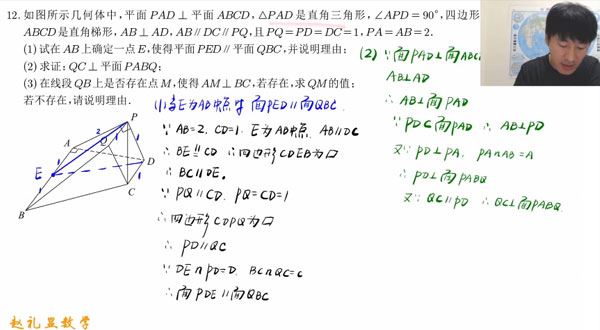 12. 如图所示几何体中,平面 PAD⊥平面 ABCD,△PAD是直角三角形,∠APD=90°,四边形
ABCD是直角梯形,AB⊥AD,AB∥DC∥PQ,且PQ=PD=DC=1,PA=AB=2.
(1)试在AB上确定一点E,使得平面PED∥平面QBC,并说明理由;
(2)求证:QC⊥平面PABQ;
(3)在线段QB上是否存在点M,使得AM⊥BC,若存在,求QM的值;
若不存在,请说明理由.
(1)当E为AB中点时 面PED∥面QBC.
∵ AB=2. CD=1. E为AB中点. AB∥DC
∴ BE∥CD ∴四边形CDEB为▱
∴ BC∥DE.
∵ PQ∥CD. PQ=CD=1
∴ 四边形CDPQ为▱
∴ PD∥QC
∵ DE∩PD=D. BC∩QC=C
∴ 面PDE∥面QBC
(2) ∵面PAD⊥面ABC
AB⊥AD
∴ AB⊥面PAD
∵ PD⊂面PAD ∴ AB⊥PD
又∵ PD⊥PA. PA∩AB=A
∴ PD⊥面PABQ
又∵ QC∥PD ∴ QC⊥面PABQ.
P
2
A
Q
1
1
E
D
1
C
B
赵礼显数学